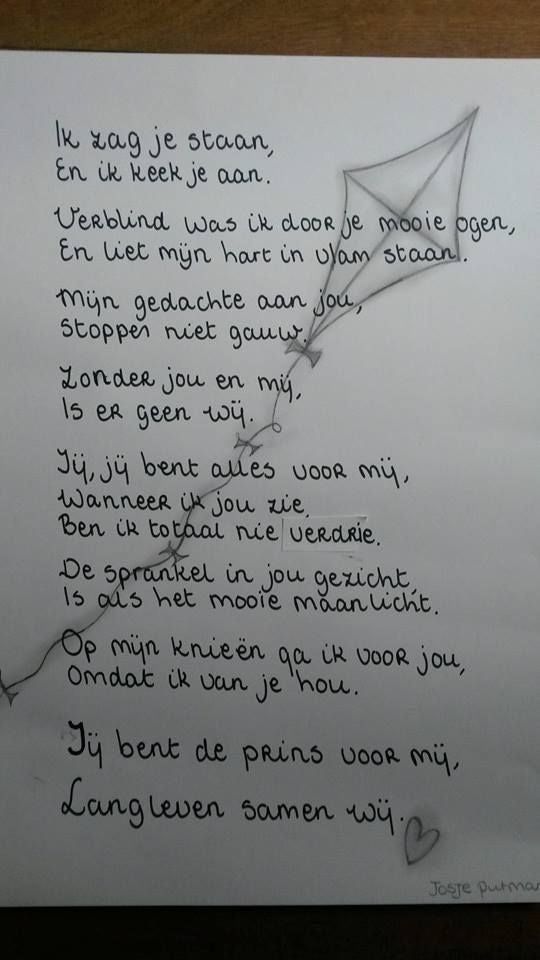 Ik zag je staan,
En ik keek je aan.
Verblind was ik door je mooie ogen,
En liet mijn hart in vlam staan.
Mijn gedachte aan jou,
Stoppen niet gauw.
Zonder jou en mij,
Is er geen wij.
Jij, jij bent alles voor mij,
Wanneer ik jou zie.
Ben ik totaal nie verdrie.
De sprankel in jou gezicht,
Is als het mooie maanlicht.
Op mijn knieën ga ik voor jou,
Omdat ik van je hou.
Jij bent de prins voor mij,
Lang leven samen wij.
Josje Putman